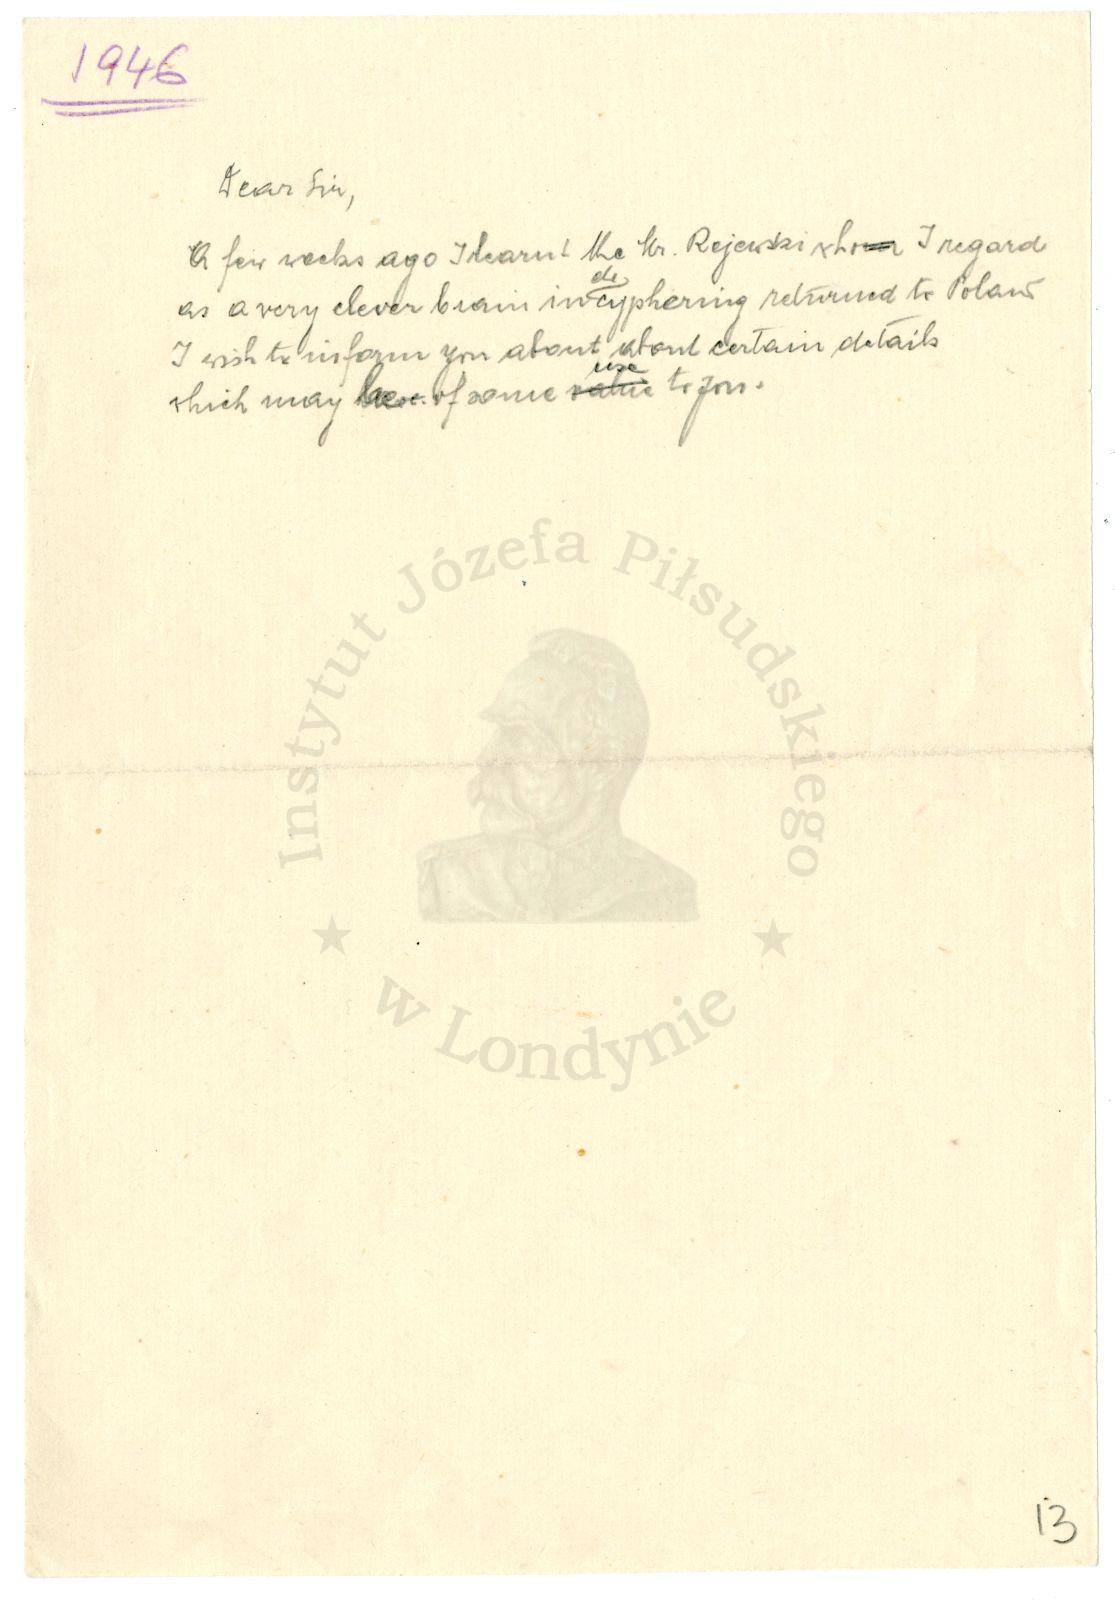 1946
Dear Sir,
A few weeks ago I learnt the Mr. Rejewski who I regard
as a very clever brain in decyphering returned to Poland
I wish to inform you about about certain details
which may be of some use to you.
Instytut Józefa Piłsudskiego
w Londynie
13